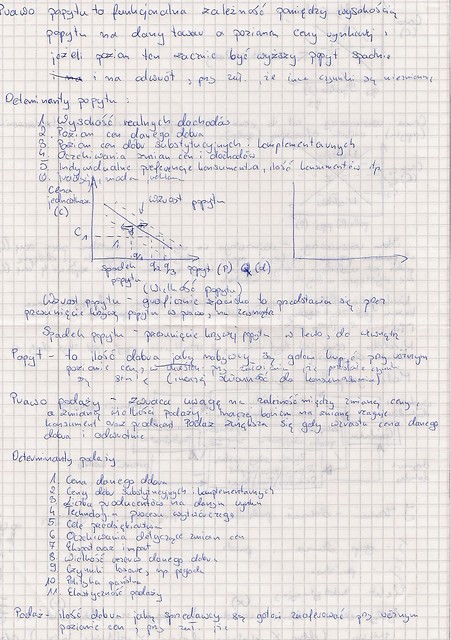 Prawo popytu to funkcjonalna zależność pomiędzy wysokością
popytu na dany towar a poziomem ceny rynkowej,
jeżeli poziom ten zacznie być wyższy popyt spadnie
i na odwrót, przy zał., że inne czynniki są niezmienne
Determinanty popytu :
1. Wysokość realnych dochodów
2. Poziom cen danego dobra
3. Poziom cen dóbr substytucyjnych i komplementarnych
4. Oczekiwania zmian cen i dochodów
5. Indywidualne preferencje konsumenta, ilość konsumentów itp.
6. moda, reklama
Cena
jednostkowa
(C)
Wzrost popytu
C1
q1 q2 q3 popyt (P) Q (d)
Spadek
popytu
(Wielkość popytu)
Wzrost popytu - graficznie zjawisko to przedstawia się przez
przesunięcie krzywej popytu w prawo, na zewnątrz
Spadek popytu - przesunięcie krzywej popytu w lewo, do wewnątrz
Popyt - to ilość dobra jaką nabywcy są gotowi kupić przy różnym
poziomie ceny, w
są
Prawo podaży - zwraca uwagę na zależność między zmianą ceny,
a zmianą wielkości podaży, inaczej na zmianę reaguje
konsument oraz producent. Podaż zwiększa się gdy wzrasta cena danego
dobra i odwrotnie
Determinanty podaży
1. Cena danego dobra
2. Ceny dóbr substytucyjnych i komplementarnych
3. Liczba producentów na danym rynku
4. Technologia procesu wytwórczego
5. Cele przedsiębiorstwa
6. Oczekiwania dotyczące zmian cen
7. Eksport oraz import
8. Wielkość danego dobra
9. Czynniki losowe, np pogoda
10. Polityka państwa
11. Elastyczność podaży
Podaż - ilość dobra jaką sprzedawcy są gotowi zaoferować przy różnym
poziomie cen, przy zał. że